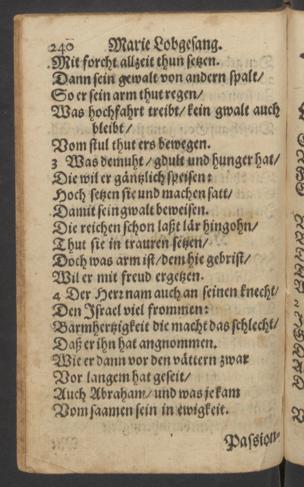 240 Marie Lobgesang.
Mit forcht allzeit thun setzen.
Dann sein gewalt von andern spalt/
So er sein arm thut regen/
Was hochfahrt treibt/ kein gwalt auch
bleibt/
Vom stul thut ers bewegen.
3 Was demuht/ gdult und hunger hat/
Die wil er gäntzlich speisen:
Hoch setzen sie und machen satt/
Damit sein gwalt beweisen.
Die reichen schon laßt lär hingohn/
Thut sie in trauren setzen/
Doch was arm ist/ dem hie gebrist/
Wil er mit freud ergetzen.
4 Der Herr nam auch an seinen knecht/
Den Israel viel frommen:
Barmhertzigkeit die macht das schlecht/
Daß er ihn hat angnommen.
Wie er dann vor den vättern zwar
Vor langem hat geseit/
Auch Abraham/ und was je kam
Vom saamen sein in ewigkeit.
Passion-